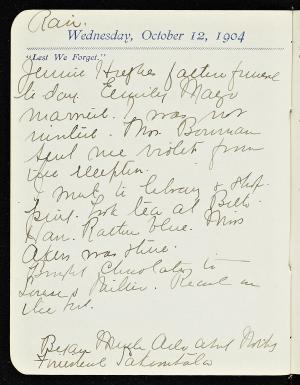 Rain.
Wednesday, October 12, 1904
"Lest We Forget."
Jennie Hughes father funeral
to day. Emily Mayo
married. I was not
invited. Mrs. Bowman
sent me violets from
the reception.
I went to library & shop-
ping. Took tea at
Han. Rather blue. Miss
Akers was there.
Bought Chocolates to
in
the
Began Much Ado about Noth
Finished Sakuntala